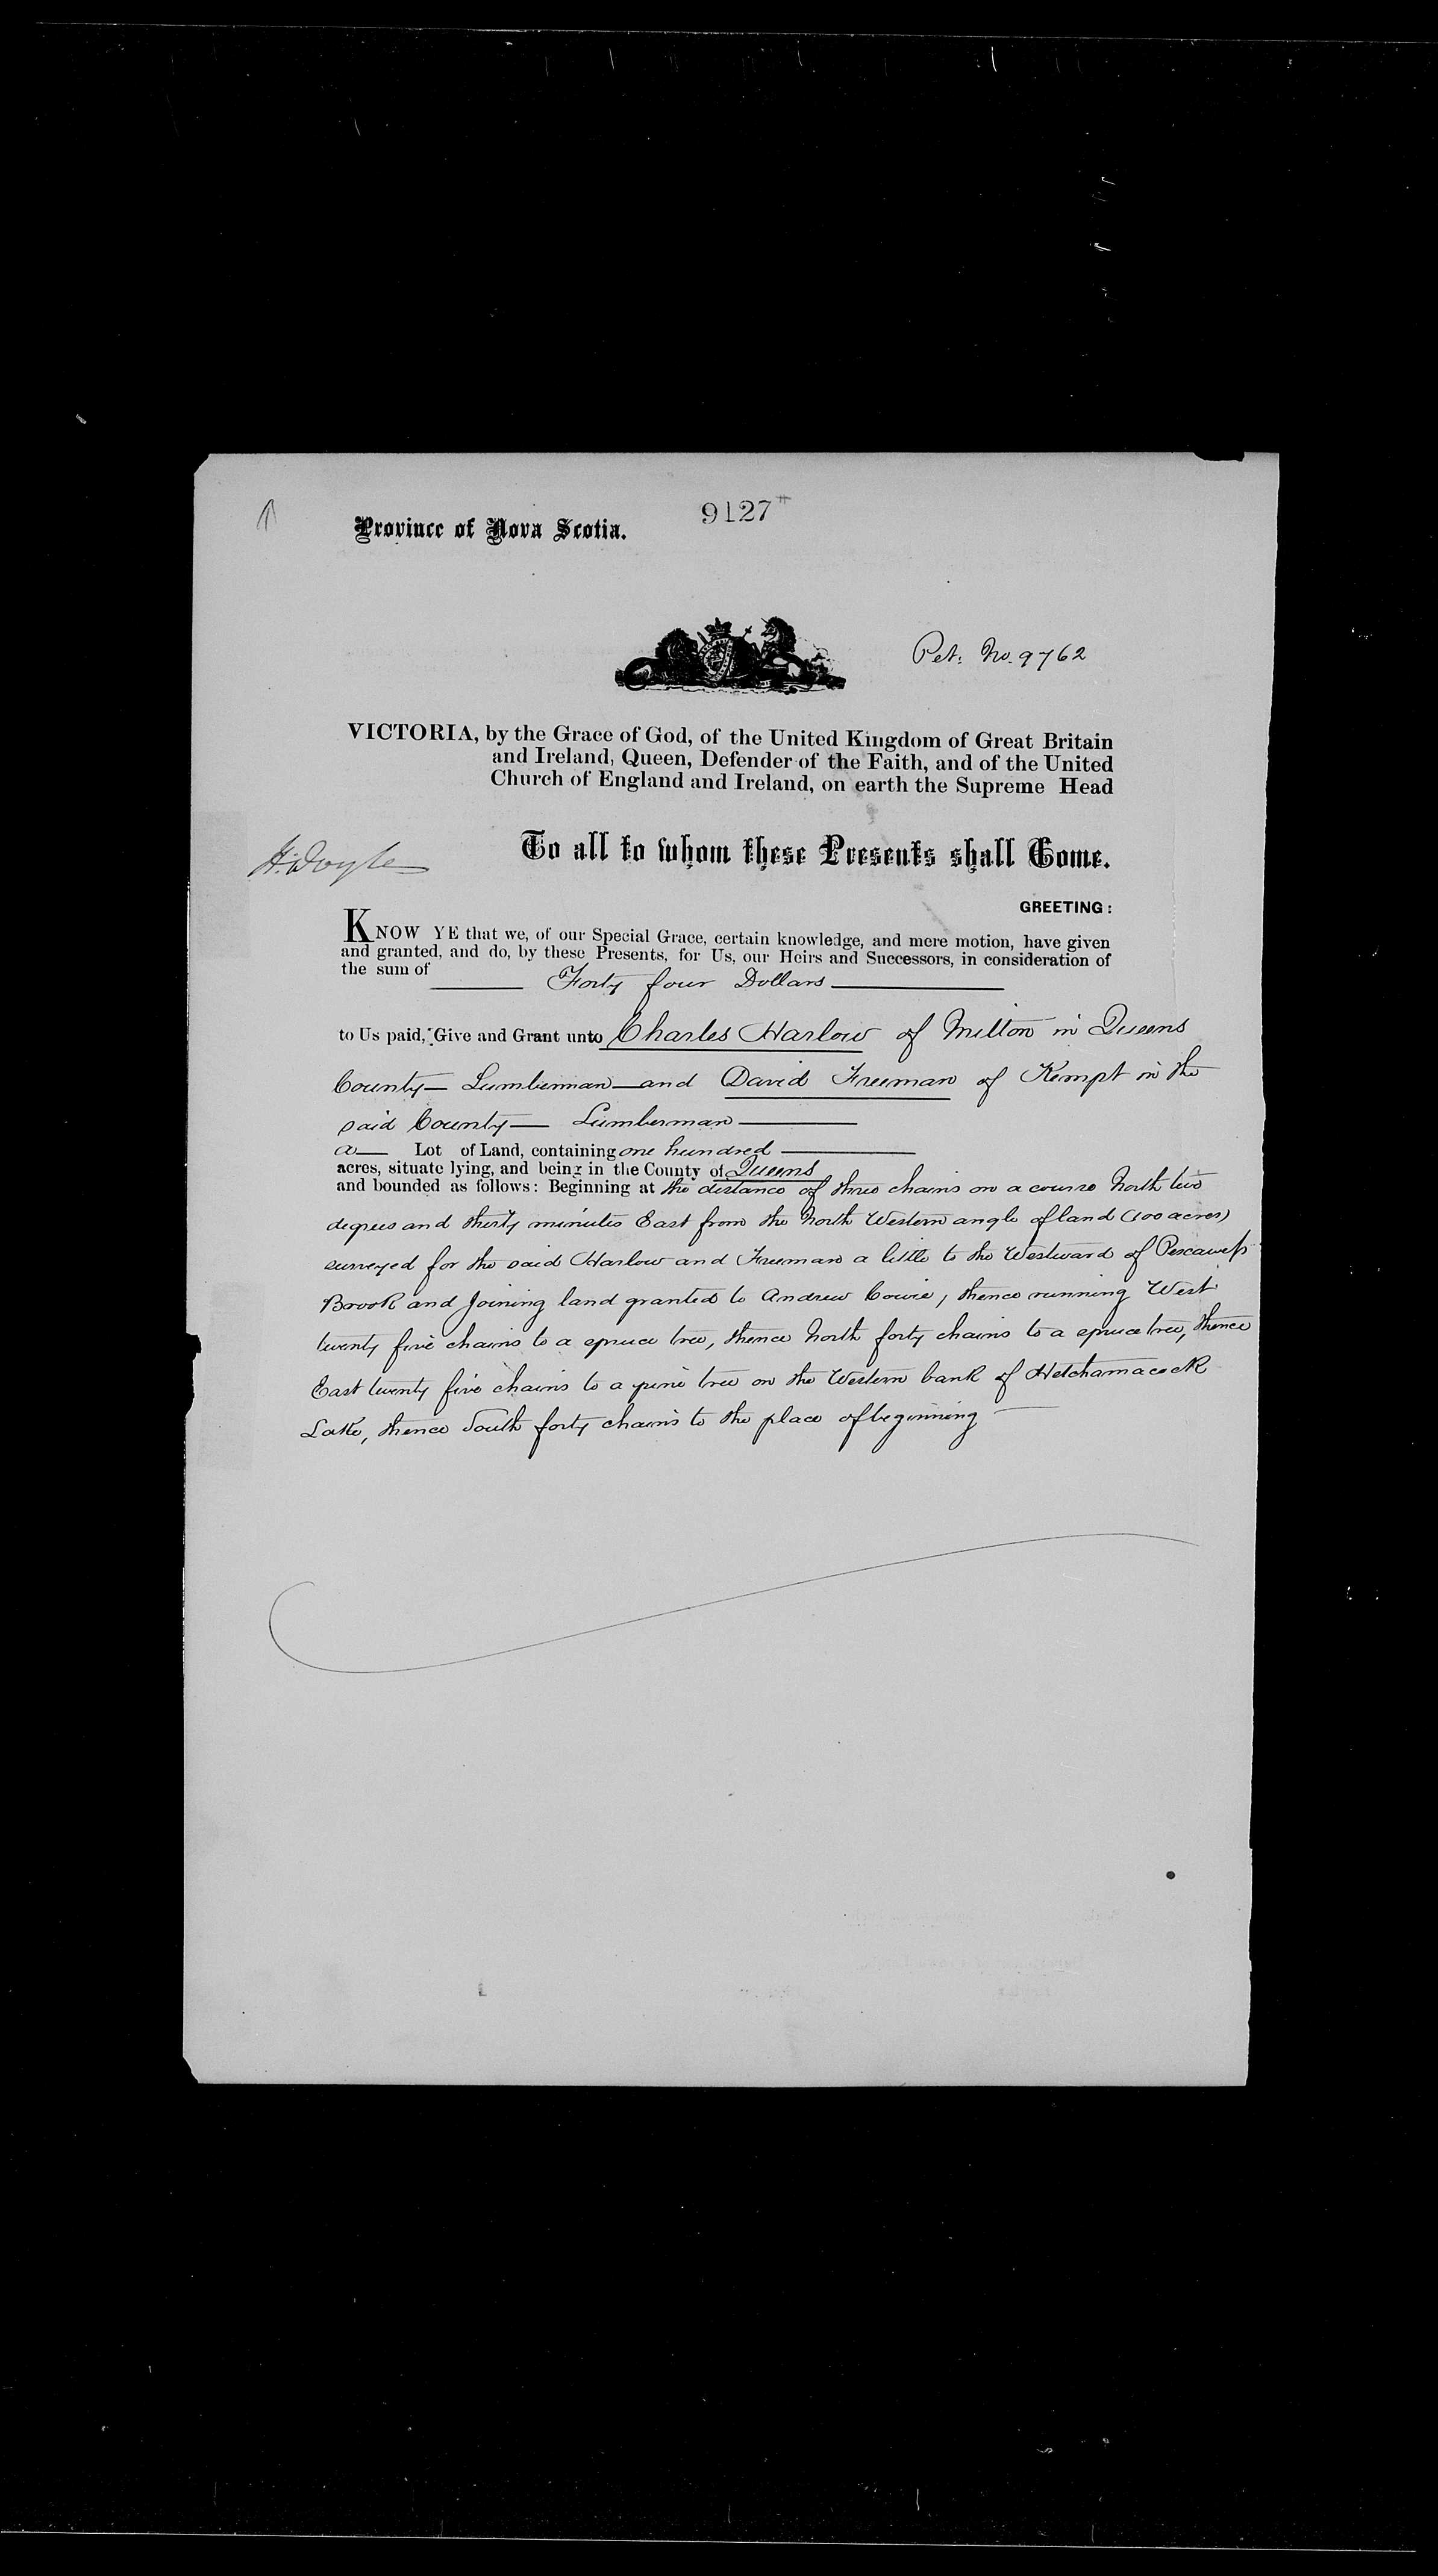 9127
Province of Nova Scotia.
Pet: No. 9762
VICTORIA, by the Grace of God, of the United Kingdom of Great Britain
and Ireland, Queen, Defender of the Faith, and of the United
Church of England and Ireland, on earth the Supreme Head
To all to whom these Presents shall Come.
H. Doyle
GREETING:
KNOW YE that we, of our Special Grace, certain knowledge, and mere motion, have given
and granted, and do, by these Presents, for Us, our Heirs and Successors, in consideration of
the sum of Forty four Dollars
to Us paid, Give and Grant unto Charles Harlow of Milton in Queens
County — Lumberman — and David Freeman of Kempt in the
said County — Lumberman —
a — Lot of Land, containing one hundred —
acres, situate lying, and being in the County of Queens
and bounded as follows: Beginning at the distance of three chains on a course North two
degrees and thirty minutes East from the North Western angle of land (100 acres)
surveyed for the said Harlow and Freeman a little to the Westward of Pescawess
Brook and joining land granted to Andrew Cowie, thence running West
twenty five chains to a spruce tree, thence North forty chains to a spruce tree, thence
East twenty five chains to a pine tree on the Western bank of Hetchamacock
Lake, thence South forty chains to the place of beginning —